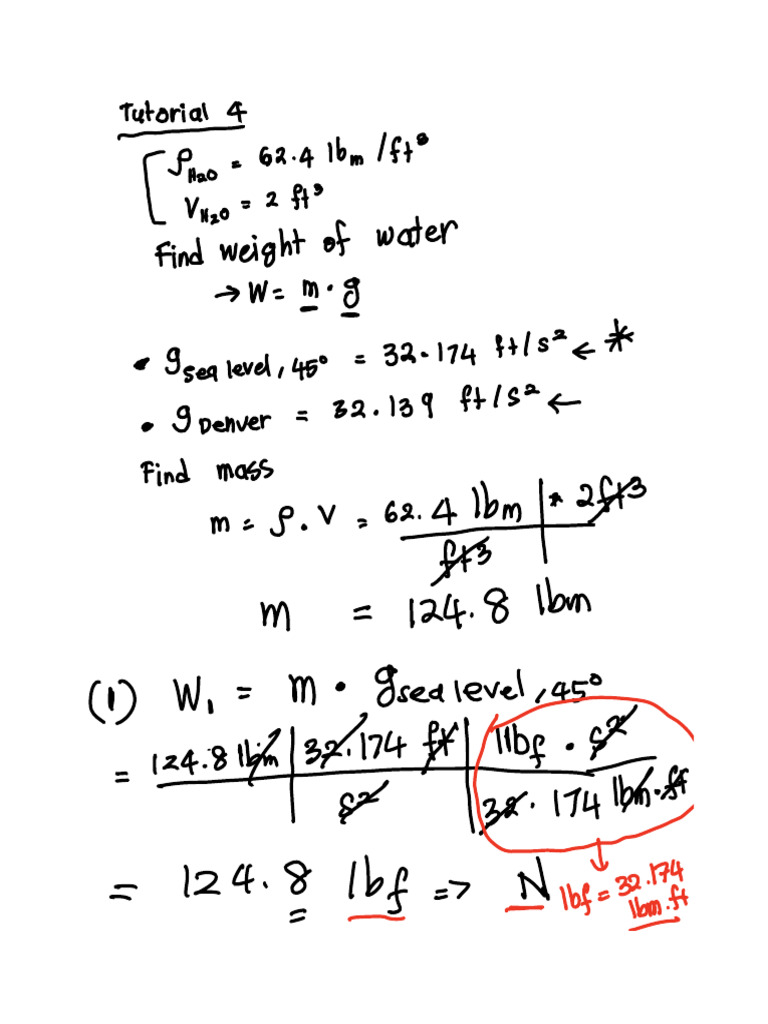 Tutorial 4
ρH2O = 62.4 lbm /ft³
VH2O = 2 ft³
Find weight of water
→ W = m · g
• gsea level, 45° = 32.174 ft/s² ← *
• gDenver = 32.139 ft/s² ←
Find mass
m = ρ. V = 62.4 lbm | * 2ft3
ft3
m = 124.8 lbm
(1) W₁ = m • gsea level, 45°
= 124.8 lbm | 32.174 ft | 1lbf . s²
s² | 32.174 lbm.ft
= 124.8 lbf => N
1lbf = 32.174
lbm.ft